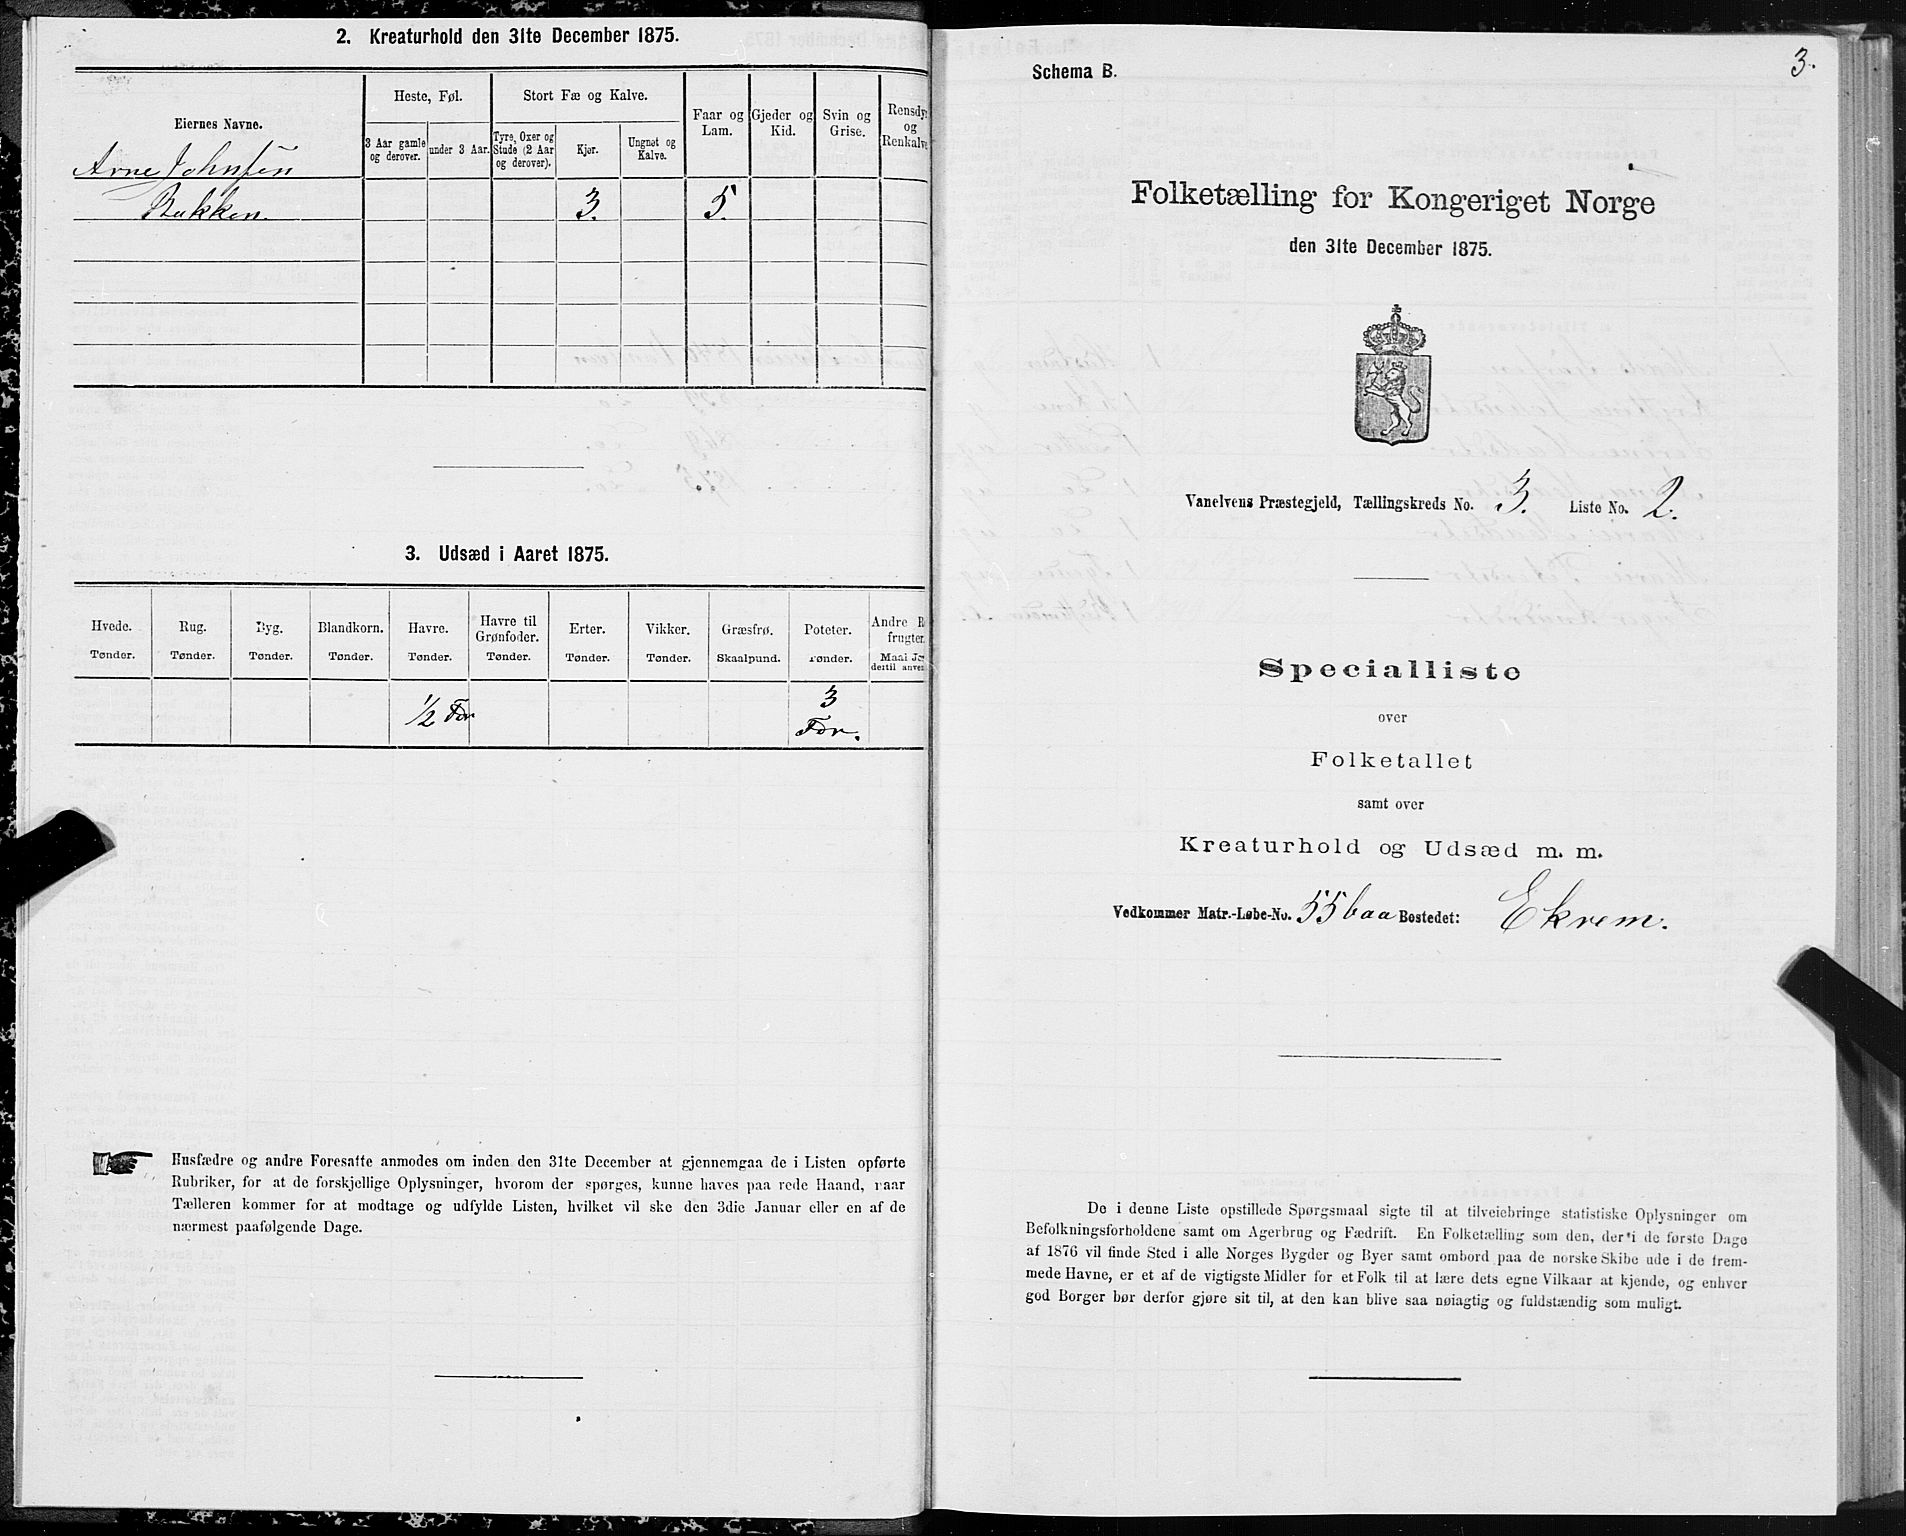 2. Kreaturhold den 31te December 1875.
Eiernes Navne.
Heste, Føl.
3 Aar gamle og derover.
under 3 Aar.
Stort Fæ og Kalve.
Tyre, Oxer og Stude (2 Aar og derover).
Kjør.
Ungnøt og Kalve.
Faar og Lam.
Gjeder og Kid.
Svin og Grise.
Rensdyr og Renkalve
Arne Johnsen
Bakken. 3. 5.
3. Udsæd i Aaret 1875.
Hvede. Rug. Byg. Blandkorn. Havre. Havre til Grønfoder. Erter. Vikker. Græsfrø. Poteter. Andre R
frugter
Tønder. Tønder. Tønder. Tønder. Tønder. Tønder. Tønder. Tønder. Skaalpund. Tønder. Maal Jo
dertil anven
1/2 Tdr 3
Tdr.
Husfædre og andre Foresatte anmodes om inden den 31te December at gjennemgaa de i Listen opførte
Rubriker, for at de forskjellige Oplysninger, hvorom der spørges, kunne haves paa rede Haand, naar
Tælleren kommer for at modtage og udfylde Listen, hvilket vil ske den 3die Januar eller en af de
nærmest paafølgende Dage.
3.
Schema B.
Folketælling for Kongeriget Norge
den 31te December 1875.
Vanelvens Præstegjeld, Tællingskreds No. 3. Liste No. 2.
Specialliste
over
Folketallet
samt over
Kreaturhold og Udsæd m. m.
Vedkommer Matr.-Løbe-No. 55baa Bostedet: Ekrem.
De i denne Liste opstillede Spørgsmaal sigte til at tilveiebringe statistiske Oplysninger om
Befolkningsforholdene samt om Agerbrug og Fædrift. En Folketælling som den, der i de første Dage
af 1876 vil finde Sted i alle Norges Bygder og Byer samt ombord paa de norske Skibe ude i de frem-
mede Havne, er et af de vigtigste Midler for et Folk til at lære dets egne Vilkaar at kjende, og enhver
god Borger bør derfor gjøre sit til, at den kan blive saa nøiagtig og fuldstændig som muligt.